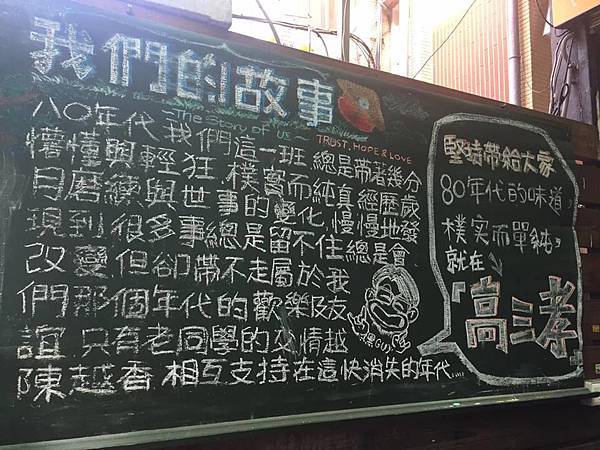 我們的故事
The Story of US
TRUST, HOPE & LOVE
八〇年代我們這一班總是帶著幾分
懵懂與輕狂 樸實而純真 經歷歲
月磨練與世事的變化,慢慢地發
現到 很多事總是留不住總是會
改變,但卻帶不走屬於我
們那個年代的歡樂及友
誼 只有老同學的友情越
陳越香 相互支持在這快消失的年代....
堅持帶給大家
80年代的味道,
樸实而單純,
就在
「高三孝」